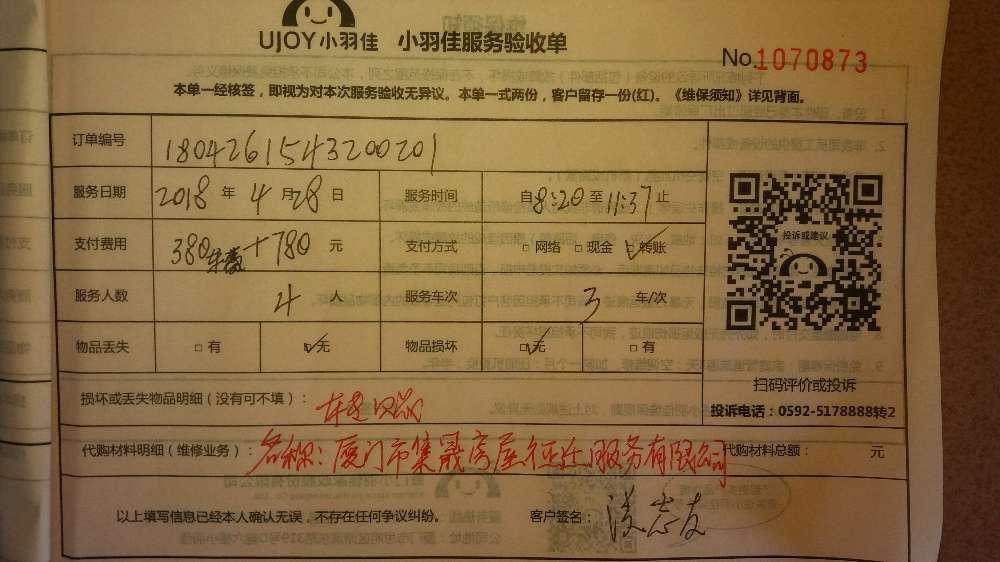 UJOY小羽佳 小羽佳服务验收单
No.1070873
本单一经核签，即视为对本次服务验收无异议。本单一式两份，客户留存一份(红)。《维保须知》详见背面。
订单编号 1804261543200201
服务日期 2018 年 4 月 28 日 服务时间 自 8:20 至 11:37 止
投诉或建议
支付费用 380 +780 元 支付方式 □ 网络 □ 现金 ☑ 转账
服务人数 4 人 服务车次 3 车/次
物品丢失 □ 有 ☑ 无 物品损坏 ☑ 无 □ 有
扫码评价或投诉
损坏或丢失物品明细（没有可不填）：
投诉电话：0592-5178888转2
代购材料明细（维修业务）： 名称：厦门市集晟房屋征迁服务有限公司 代购材料总额： 元
以上填写信息已经本人确认无误，不存在任何争议纠纷。 客户签名：